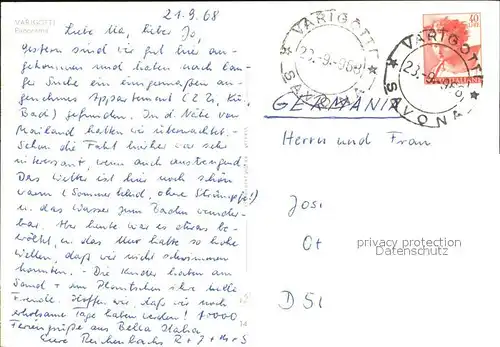 VARIGOTTI
Panorama
21.9.68
Liebe Ma, lieber Jo,
gestern sind wir gut hier an-
gekommen und haben nach lan-
ger Suche ein einigermaßen an-
genehmes Appartement (2 Zi, Kü,
Bad) gefunden. In d. Nähe von
Mailand hatten wir übernachtet. -
Schon die Fahrt hierher war sehr
interessant, wenn auch anstrengend.
Das Wetter ist hier noch schön
warm (Sommerkleid, ohne Strümpfe!)
u. das Wasser zum Baden wunder-
bar. Aber heute war es etwas be-
wölkt, u. das Meer hatte so hohe
Wellen, daß wir nicht schwimmen
konnten. - Die Kinder haben am
Sand + im Planschen ihre helle
Freude. Hoffen wir, daß wir noch
erholsame Tage haben werden! 1000
Feriengrüße aus Bella Italia
Eure Reichenbachs
VARIGOTTI
23.9.968
SAVONA
40
VARIGOTTI
23.9.968
SAVONA
GERMANIA
Herrn und Frau
Josi
Ot
D 51
privacy protection
Datenschutz